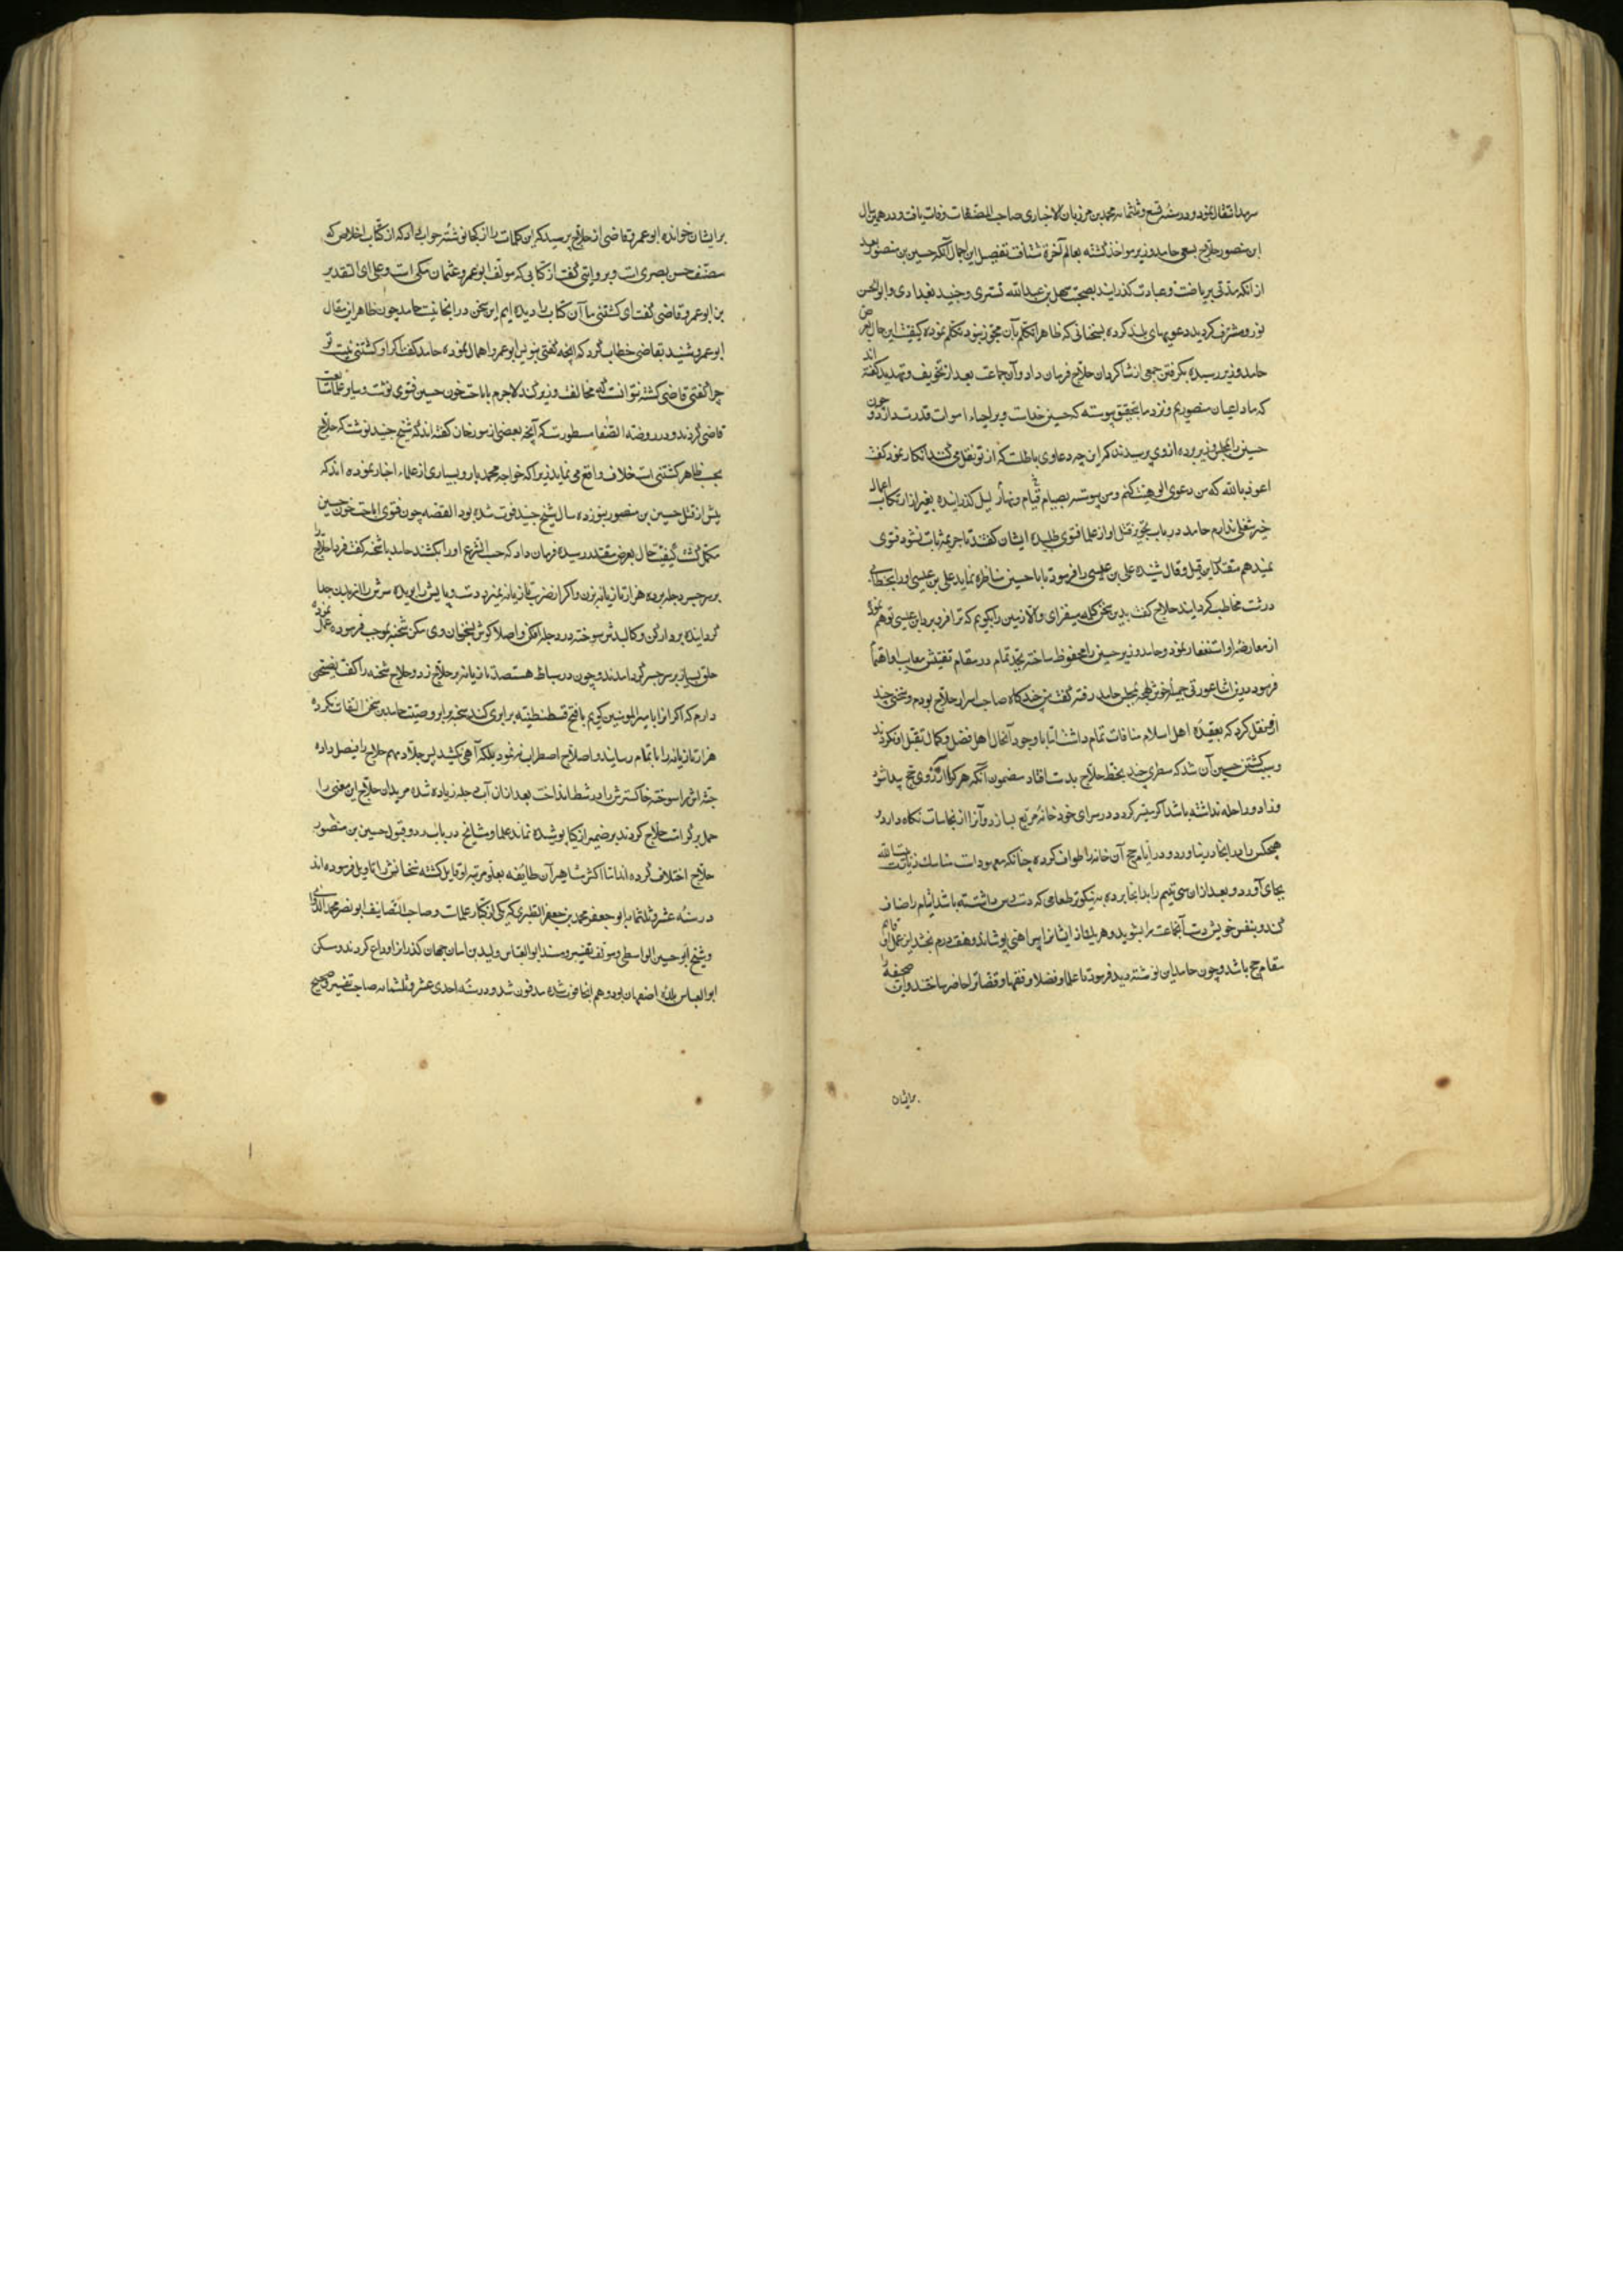 سرمد انتقال نمود و در سنه تسع و ثلثمائه محمد بن مرزبان الاخباری صاحب المصنفات وفات یافت و در همین سال
ابن منصور حلاج بسعی حامد وزیر مواخذ گشته بعالم آخرة شتافت تفصیل این اجمال آنکه حسین بن منصور بعد
از آنکه مدتی بریاضت و عبادت گذرانید بصحبت سهل بن عبدالله تستری و جنید بغدادی و ابوالحسن
نوری مشرف گردید دعویهای بلند کرده بسخنانی که ظاهرا تکلم بآن مجوز نبود تکلم نموده کیفیت این حال بعرض
حامد وزیر رسیده بگرفتن جمعی از شاگردان حلاج فرمان داد و آن جماعت بعد از تخویف و تهدید گفته اند
که ما داعیان منصوریم و نزد ما بتحقیق پیوسته که حسین خداست و بر احیاء اموات قدرت دارد و چون
حسین را بمجلس وزیر برده از وی پرسیدند که این چه دعاوی باطلست که از تو نقل می کنند انکار نمود گفت
اعوذ بالله که من دعوی الوهیت کنم و من پیوسته بصیام و قیام و نهار لیل گذرانیده بغیر از ارتکاب اعمال
خیر شغلی ندارم حامد در باب تجویز قتل او از علما فتوی طلبیده ایشان گفتند تا جریمه ثابت نشود فتوی
نمیدهیم مقتدر این قیل و قال شنیده علی بن عیسی را فرمود تا با حسین مناظره نماید علی بن عیسی او را بخطابی
درشت مخاطب گردانید حلاج گفت بدین سخن کله میفزای و الا زمین را بگویم که ترا فرو برد ابن عیسی توهم نموده
از معارضه او استغفار نمود و حامد وزیر حسین را محفوظ ساخته بجد تمام در مقام تفتیش معایب او اهتمام
فرمود درین اثنا عورتی جمیله خوش لهجه بمجلس حامد رفته گفت من چندگاه صاحب اسرار حلاج بودم و سخنی چند
ازو نقل کرد که بعقیده اهل اسلام منافات تمام داشت اما با وجود آنحال اهل فضل و کمال بقتل او نکردند
و سبب کشتن حسین آن شد که سطری چند بخط حلاج بدست افتاد مضمون آنکه هر که را آرزوی حج پیدا شود
و زاد و راحله نداشته باشد اگر میسر گردد در سرای خود خانه مربع بسازد و آنرا از نجاسات نگاه دارد و
هیچکس را بدانجا در نیاورد و در ایام حج آن خانه را طواف کرده چنانکه معهود است مناسک زیارت بیت الله
بجای آورد و بعد از آن سی یتیم را بدانجا برده به نیکوتر طعامی که دست رس داشته باشد ایتام را ضیافت
کند و بنفس خویش دست آنجماعت را بشوید و هر یک از ایشانرا پیراهنی پوشاند و هفت درم بخشد این عمل او قایم
مقام حج باشد و چون حامد این نوشته دید فرمود تا علما و فضلا و فقها و قضاة را حاضر ساختند و آن صحیفه را
برایشان
برایشان خوانده ابو عمرو قاضی از حلاج پرسید که این کلمات را از کجا نوشته جواب داد که از کتاب اخلاص که
مصنف حسن بصری است و بروایتی گفت از کتابی که مولف ابو عمرو عثمان مکی است و علی ای التقدیر
بن ابو عمرو قاضی گفت ای کشتنی ما آن کتاب را دیده ایم این سخن در آنجا نیست حامد چون ظاهر این مقال
ابو عمرو شنید بقاضی خطاب کرد که آنچه گفتی بنویس ابو عمرو اهمال نموده حامد گفت اگر او کشتنی نیست تو
چرا گفتی قاضی کشته نتوانست که مخالفت وزیر کند لاجرم باباحت خون حسین فتوی نوشت و سایر علما متابعت
قاضی کردند و در روضة الصفا مسطورست که آنچه بعضی از مورخان گفته اند که شیخ جنید نوشت که حلاج
بحسب ظاهر کشتنی است خلاف واقع می نماید زیرا که خواجه محمد پارسا و بسیاری از علماء اخبار نموده اند که
پیش از قتل حسین بن منصور بنوزده سال شیخ جنید فوت شده بود القصه چون فتوی اباحت خون حسین
مکمل گشت کیفیت حال بعرض مقتدر رسیده فرمان داد که حسب الشرع او را بکشند حامد با شحنه گفت فردا حلاج را
بر سر جسر دجله برده هزار تازیانه بزن و اگر از ضرب تازیانه نمیرد دست و پایش را بریده سرش را از بدن جدا
گردانیده بردار کن و کالبدش سوخته در دجله افکن و اصلا گوش بسخنان وی مکن شحنه بموجب فرموده عمل نموده
حلق بسیار بر سر جسر گرد آمدند و چون در سیاط هستصد تازیانه بر حلاج زد و حلاج شحنه را گفت نصیحتی
دارم که اگر آنرا با امیر المومنین گویم با فتح قسطنطنیه برابری کند شحنه برابر وصیت حامد بدین سخن التفات نکرده
هزار تازیانه را باتمام رسانید و اصلا حلاج اضطراب ننمود بلکه آهی نکشید پس جلاد مهم حلاج را فیصل داده
جثه اش را سوخته خاکسترش را در شط انداخت بعد از آن آب دجله زیاده شده مریدان حلاج این معنی را
حمل بر کرامت حلاج کردند بر ضمیر ازکیا پوشیده نماند علما و مشایخ در باب رد و قبول حسین بن منصور
حلاج اختلاف کرده اند اما اکثر مشاهیر آن طایفه بعلو مرتبه او قایل گشته سخنانش را تاویل فرموده اند
در سنه عشر و ثلثمائه ابو جعفر محمد بن جعفر الطبری که یکی از کبار علماست و صاحب التصانیف ابو نصر محمد
و شیخ ابو حسین الواسطی و مولف تفسیر و مسند ابو العباس ولید بن ابان جهان گذران را وداع کردند و مسکن
ابو العباس بلده اصفهان بود و هم آنجا فوت شده مدفون شد و در سنه احدی عشر و ثلثمائه صاحب تفسیر و صحیح